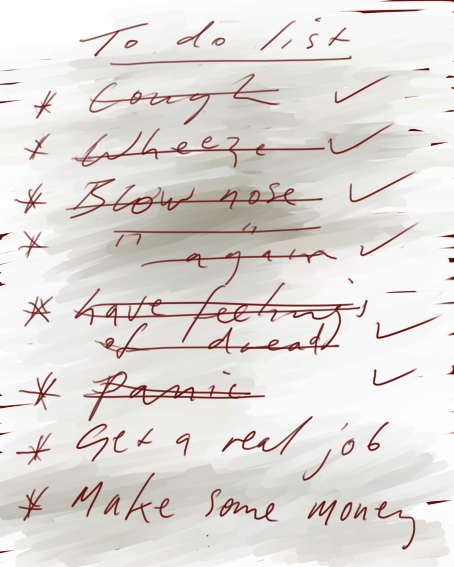 To do list
* Cough ✓
* Wheeze ✓
* Blow nose ✓
* " "
again ✓
* have feelings
of dread ✓
* Panic ✓
* Get a real job
* Make some money